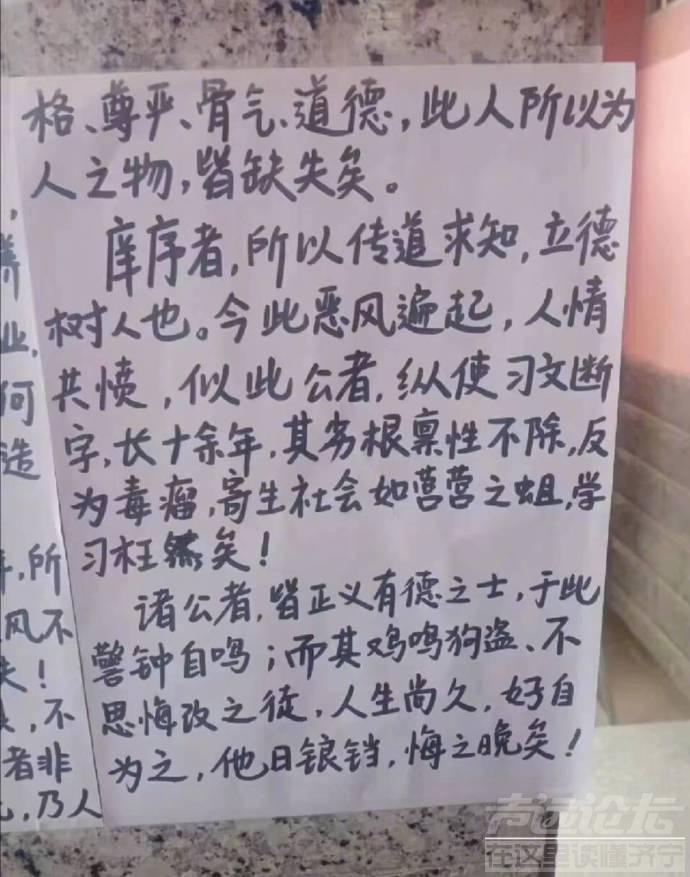 格、尊严、骨气、道德，此人所以为
人之物，皆缺失矣。
庠序者，所以传道求知，立德
树人也。今此恶风遍起，人情
共愤，似此公者，纵使习文断
字，长十余年，其劣根禀性不除，反
为毒瘤，寄生社会如营营之蛆，学
习枉然矣！
诸公者，皆正义有德之士，于此
警钟自鸣；而其鸡鸣狗盗、不
思悔改之徒，人生尚久，好自
为之，他日锒铛，悔之晚矣！
业，
何
造
所
风不
失！
，不
者非
，乃人
声远论坛
在这里读懂济宁